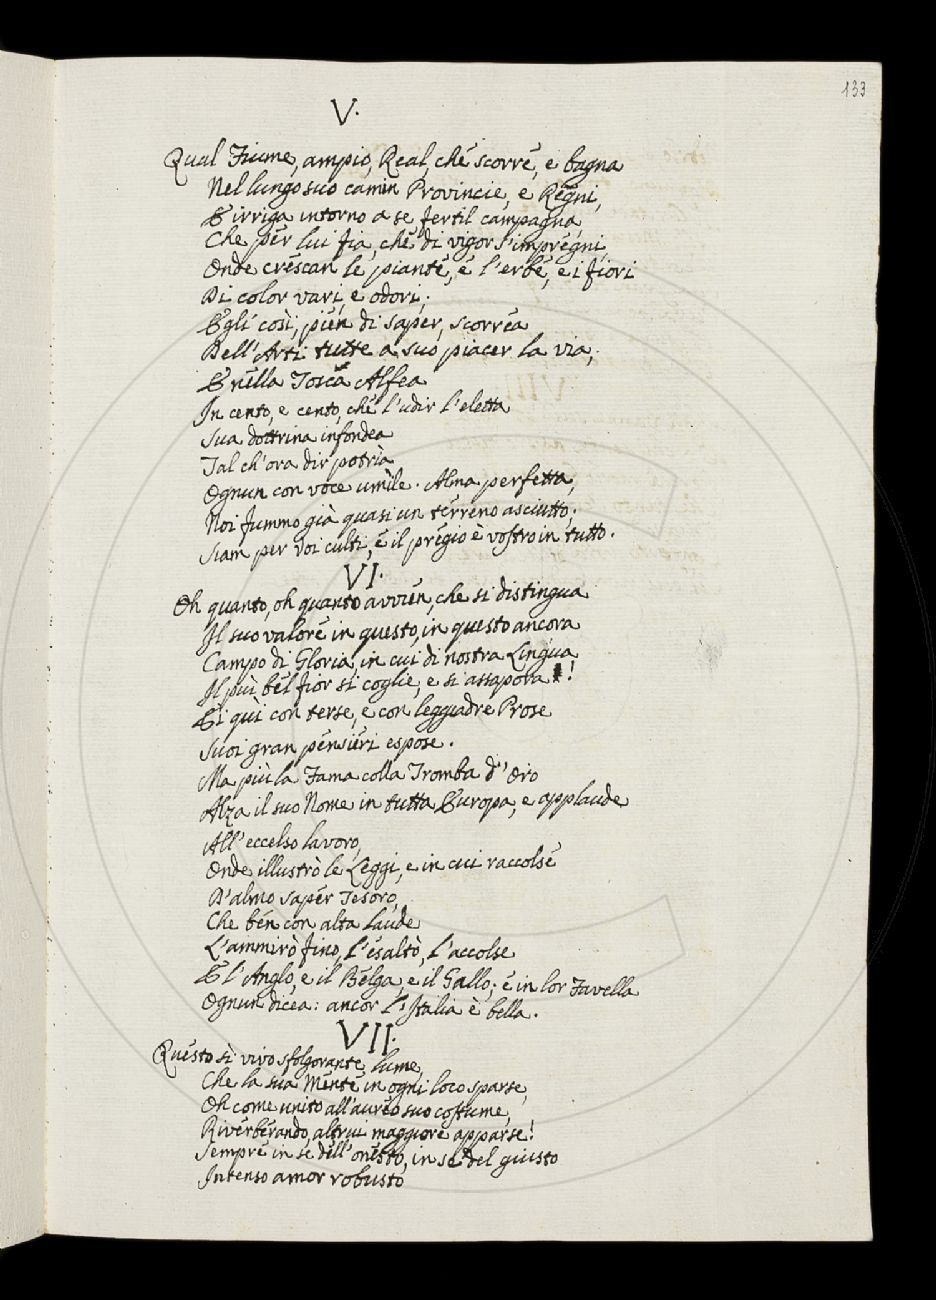 133
V.
Qual Fiume, ampio, Real, che scorre, e bagna
Nel lungo suo camin Provincie, e Regni,
E irriga intorno a se fertil campagna,
Che per lui fia, che di vigor s'impregni,
Onde crescan le piante, e l'erbe, e i fiori
Di color vari, e odori;
Egli così, pien di saper, scorrea
Dell'Arti tutte a suo piacer la via;
E nella Tosca Alfea
In cento, e cento, che l'udir l'eletta
Sua dottrina infondea
Tal ch'ora dir potria
Ognun con voce umìle. Alma perfetta,
Noi fummo già quasi un terreno asciutto;
Siam per voi culti, e il pregio è vostro in tutto.
VI.
Oh quanto, oh quanto avvien, che si distingua
Il suo valore in questo, in questo ancora
Campo di Gloria, in cui di nostra Lingua
Il più bel fior si coglie, e si assapora !
Ei quì con terse, e con leggiadre Prose
Suoi gran pensieri espose.
Ma più la Fama colla Tromba d'Oro
Alza il suo Nome in tutta Europa, e applaude
All'eccelso lavoro,
Onde illustrò le Leggi, e in cui raccolse
D'almo saper Tesoro,
Che ben con alta laude
L'ammirò fino, l'esaltò, l'accolse
E l'Anglo, e il Belga, e il Gallo; e in lor Favella
Ognun dicea: ancor l'Italia è bella.
VII.
Questo sì vivo sfolgorante lume,
Che la sua Mente in ogni loco sparse,
Oh come unito all'aureo suo costume,
Riverberando, altrui maggiore apparse!
Sempre in se dell'onesto, in se del giusto
Intenso amor robusto